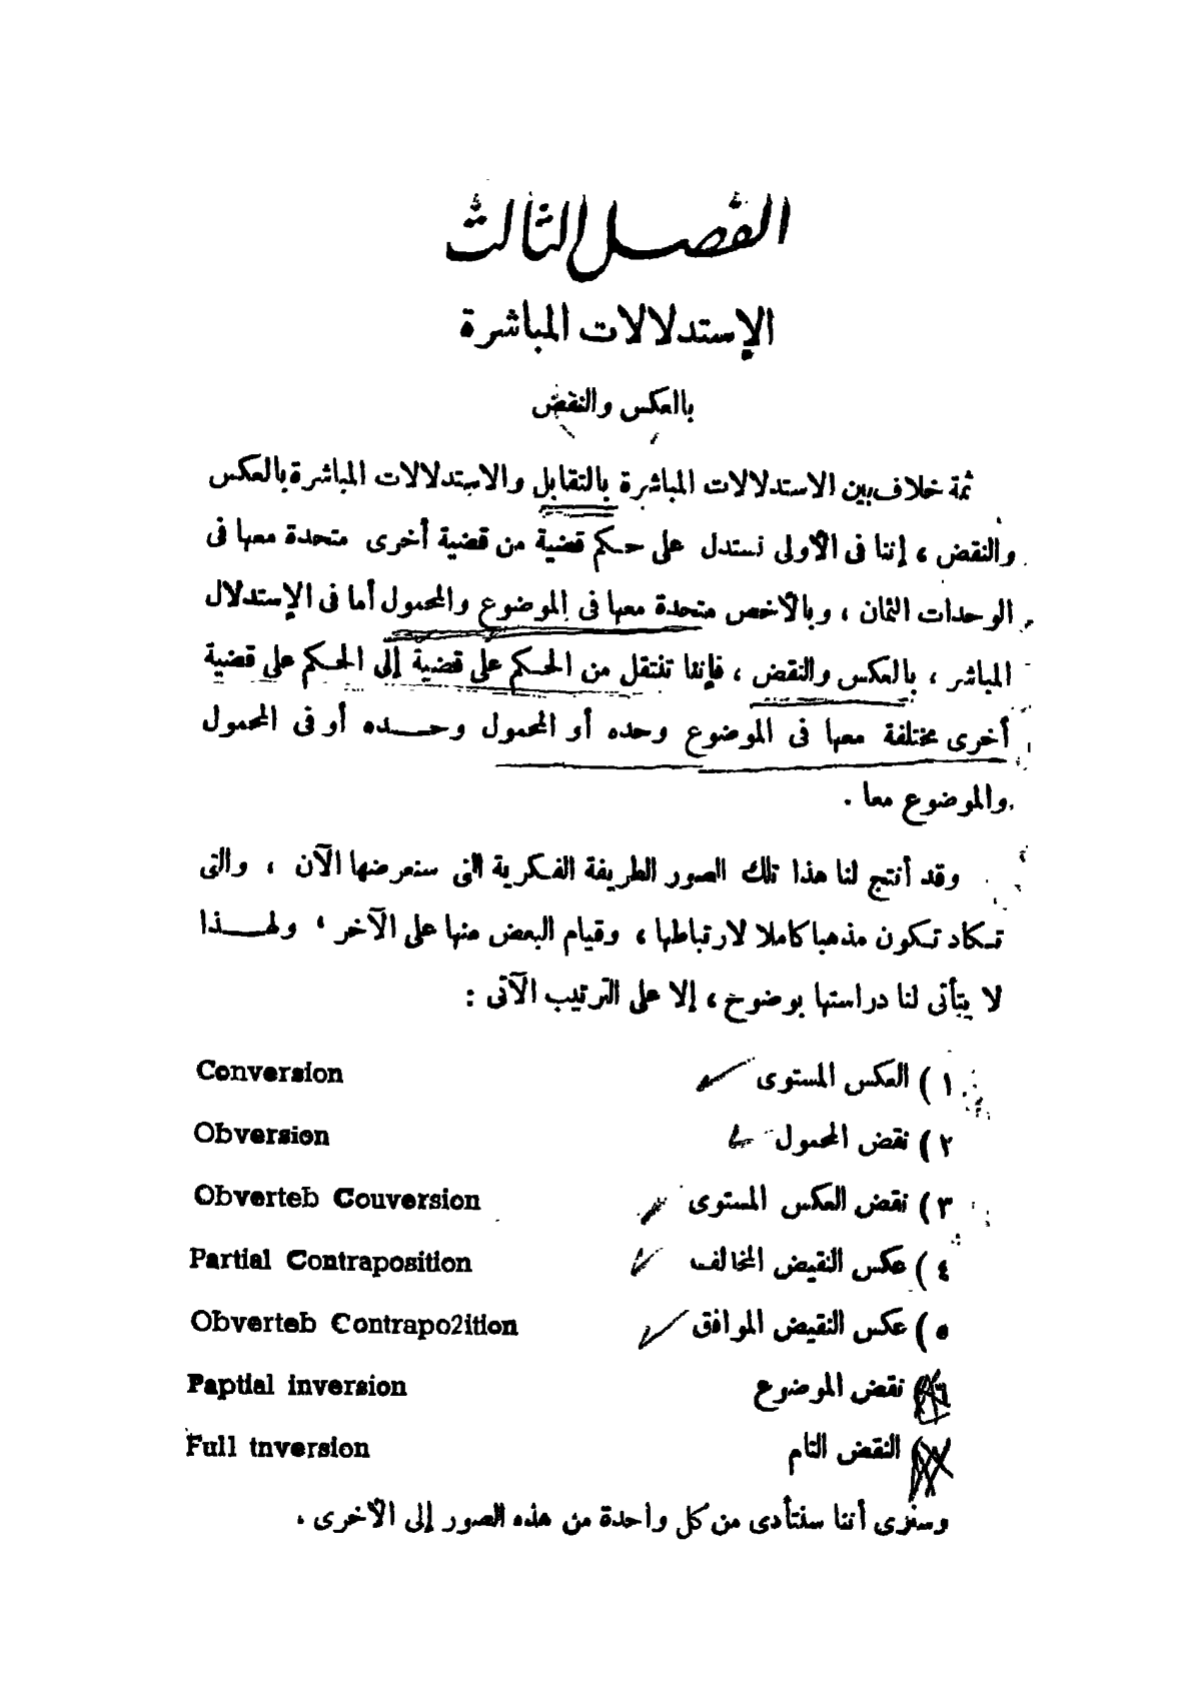 الفصل الثالث
الإستدلالات المباشرة
بالعكس والنقض
ثمة خلاف بين الاستدلالات المباشرة بالتقابل والاستدلالات المباشرة بالعكس
والنقض ، إننا فى الأولى نستدل على حكم قضية من قضية أخرى متحدة معها فى
الوحدات الثمان ، وبالأخص متحدة معها فى الموضوع والمحمول أما فى الإستدلال
المباشر ، بالعكس والنقض ، فإننا ننتقل من الحكم على قضية إلى الحكم على قضية
أخرى مختلفة معها فى الموضوع وحده أو المحمول وحده أو فى المحمول
والموضوع معا .
وقد أنتج لنا هذا تلك الصور الطريفة الفكرية التى سنعرضها الآن ، والتى
تكاد تكون مذهبا كاملا لارتباطها ، وقيام البعض منها على الآخر ، ولهذا
لا يتأتى لنا دراستها بوضوح ، إلا على الترتيب الآتى :
١ ) العكس المستوى Conversion
٢ ) نقض المحمول Obversion
٣ ) نقض العكس المستوى Obverteb Couversion
٤ ) عكس النقيض المخالف Partial Contraposition
٥ ) عكس النقيض الموافق Obverteb Contrapo2ition
نقض الموضوع Paptial inversion
النقض التام Full tnversion
وسنرى أننا سنتأدى من كل واحدة من هذه الصور إلى الأخرى .